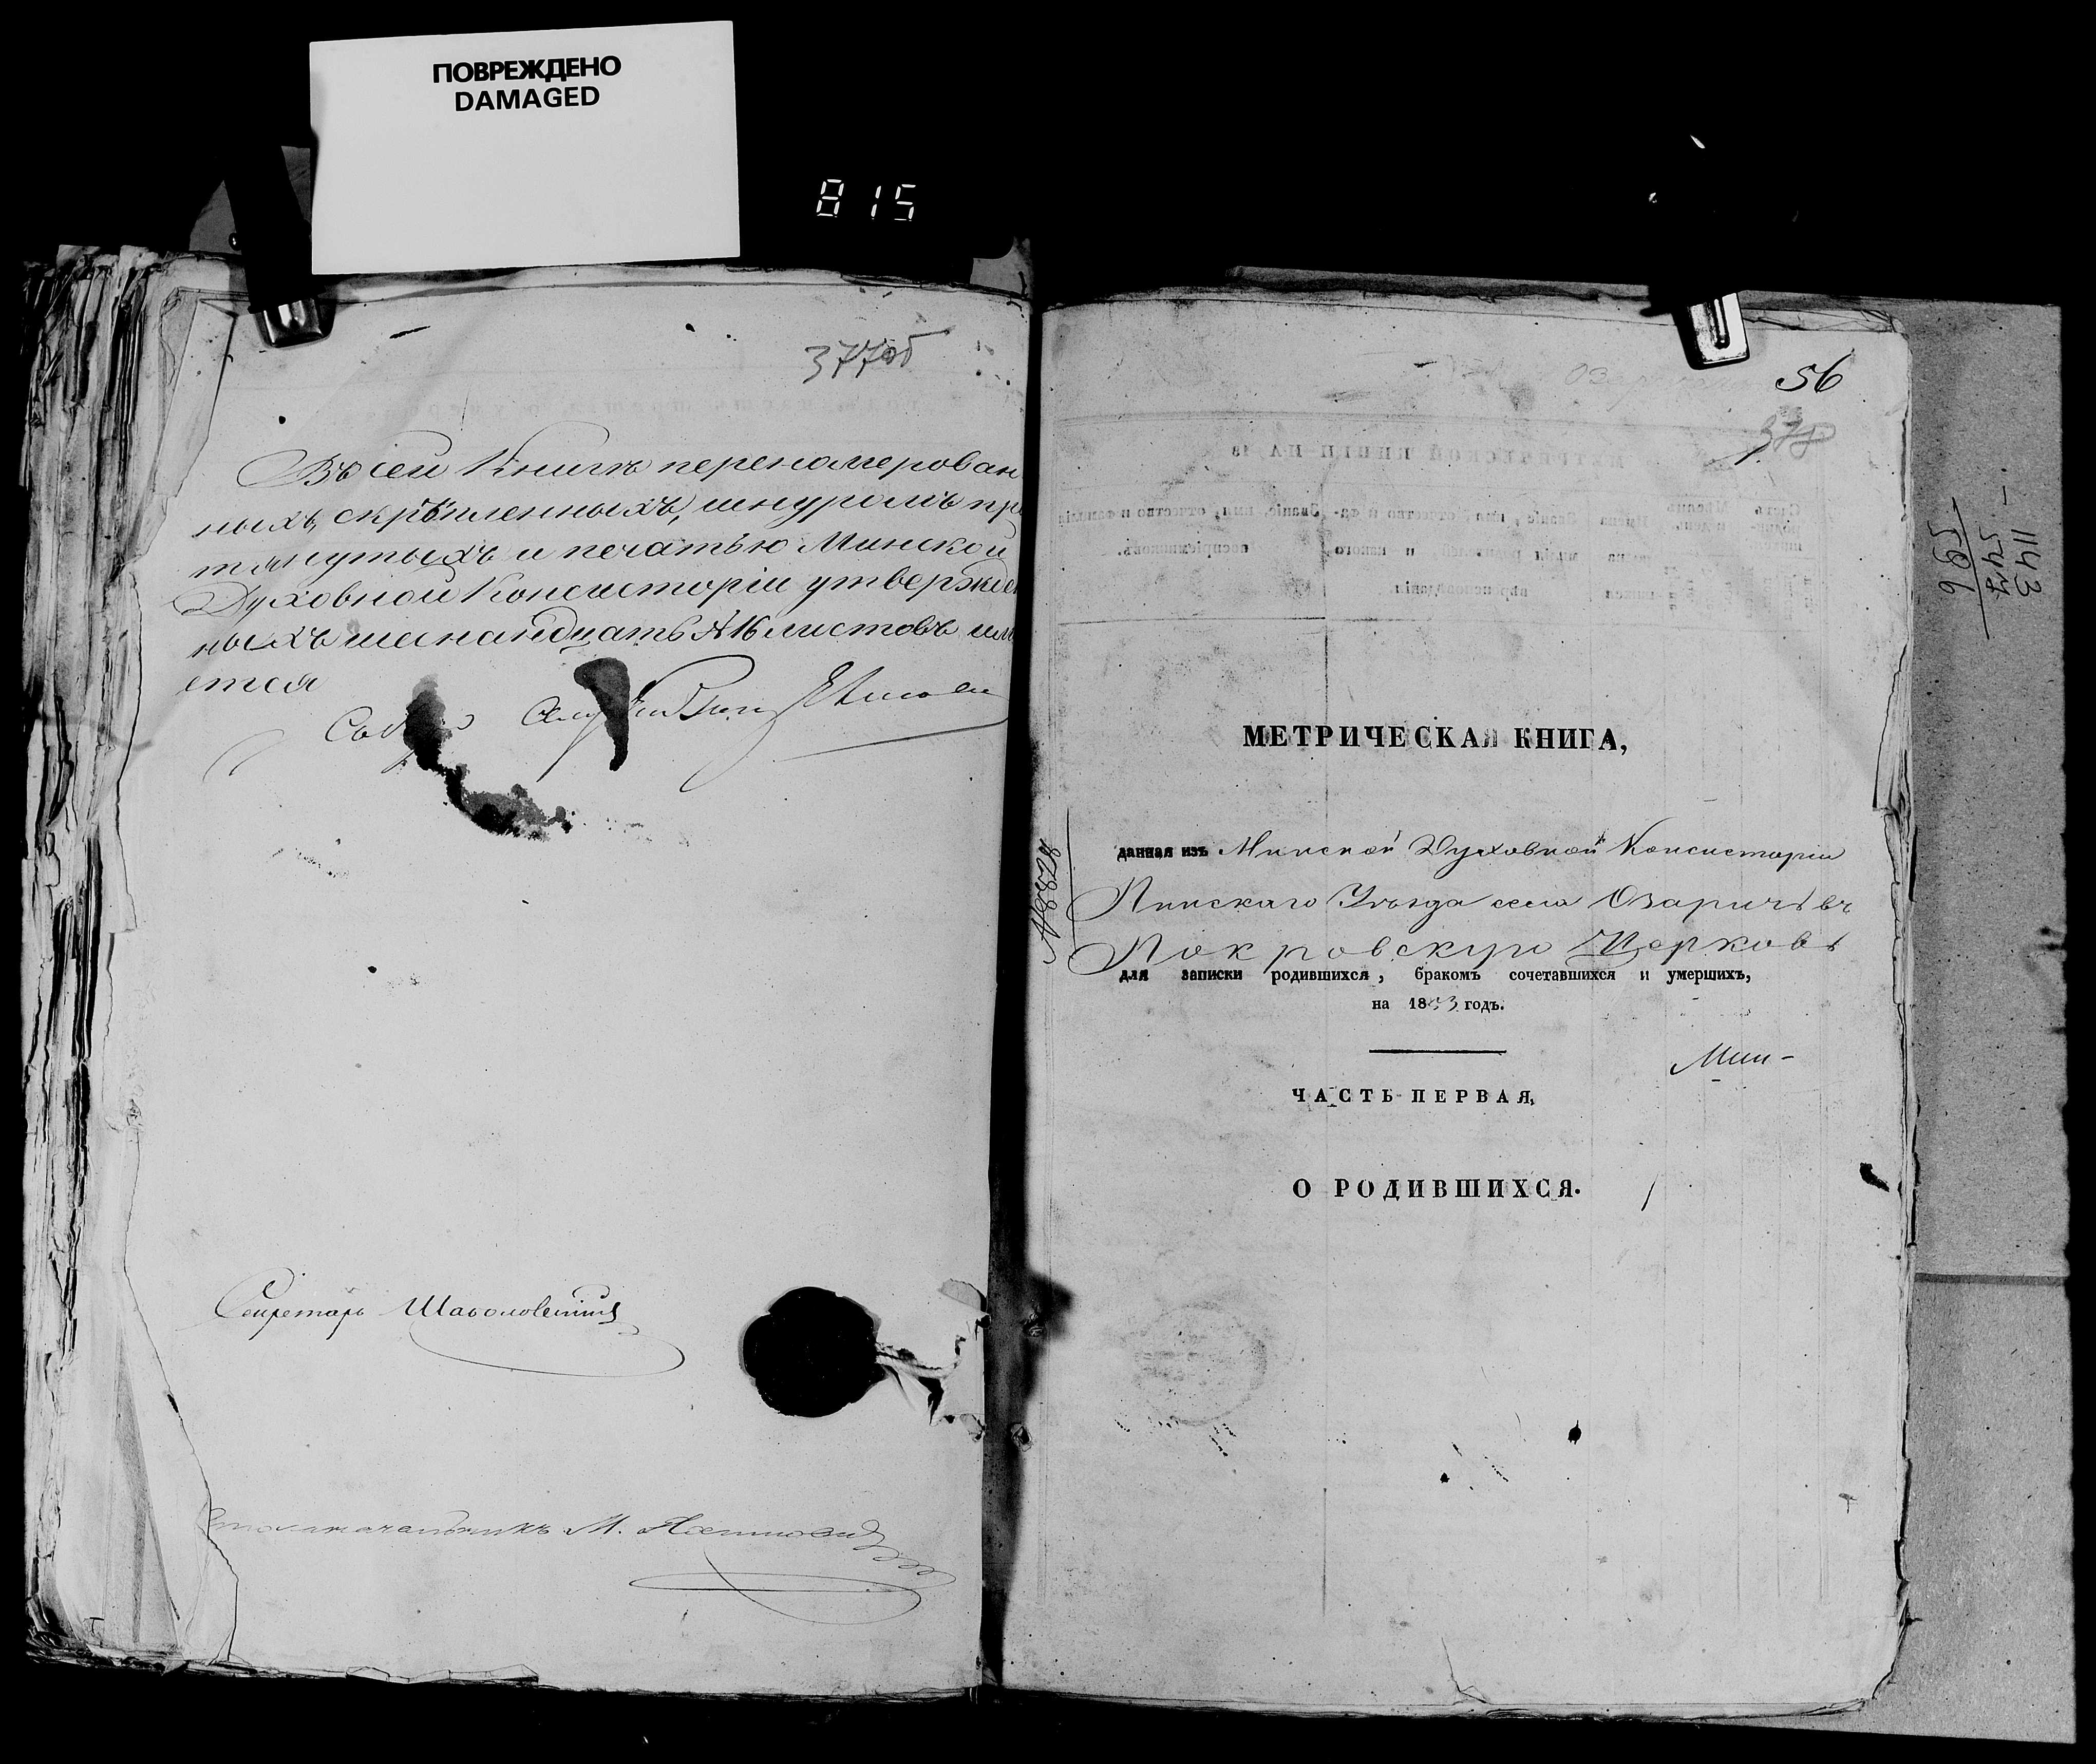 ПОВРЕЖДЕНО
DAMAGED
815
377об
Въ сей Книгѣ переномерован
ныхъ, скрѣпленныхъ, шнуромъ про
тянутыхъ и печатью Минской
Духовной Консисторіи утвержден
ныхъ шеснандцать № 16 листовъ име
ется
Секретарь
Столоначальникъ М.
56
378
МЕТРИЧЕСКАЯ КНИГА,
данная изъ Минской Духовной Консисторіи
Пинскаго Уѣзда села Озаричъ въ
Покровскую Церковь
для записки родившихся, бракомъ сочетавшихся и умершихъ,
на 1853 годъ.
Мин-
ЧАСТЬ ПЕРВАЯ,
О РОДИВШИХСЯ.
№8378
1143
547
596